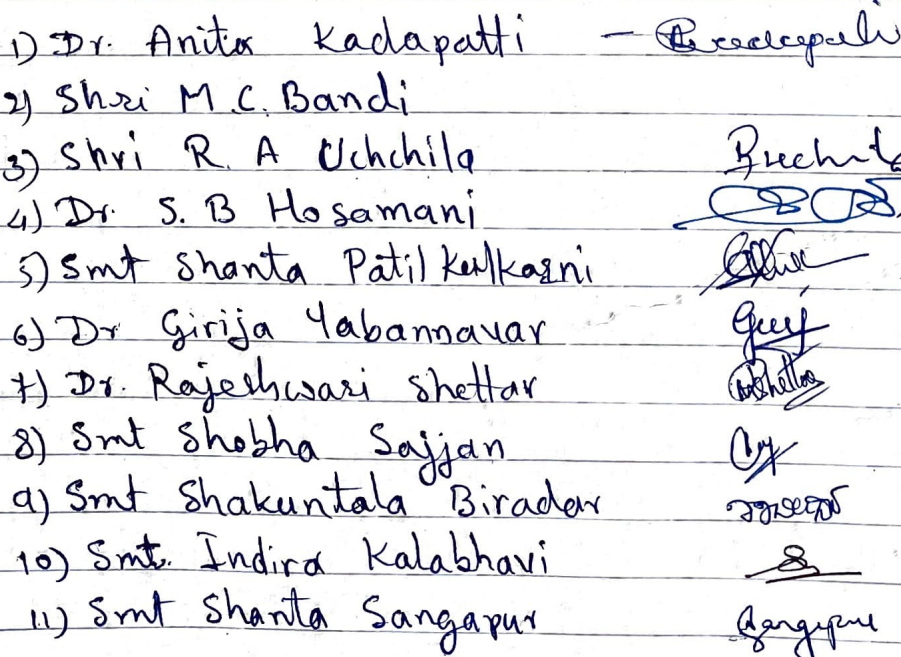 1) Dr. Anita Kadapatti -
2) Shri M.C. Bandi
3) Shri R. A Uchchila
4) Dr. S. B Hosamani
5) Smt Shanta Patil Kulkarni
6) Dr Girija Yabannavar
7) Dr. Rajeshwari Shettar
8) Smt Shobha Sajjan
9) Smt Shakuntala Biradar
10) Smt. Indira Kalabhavi
11) Smt Shanta Sangapur